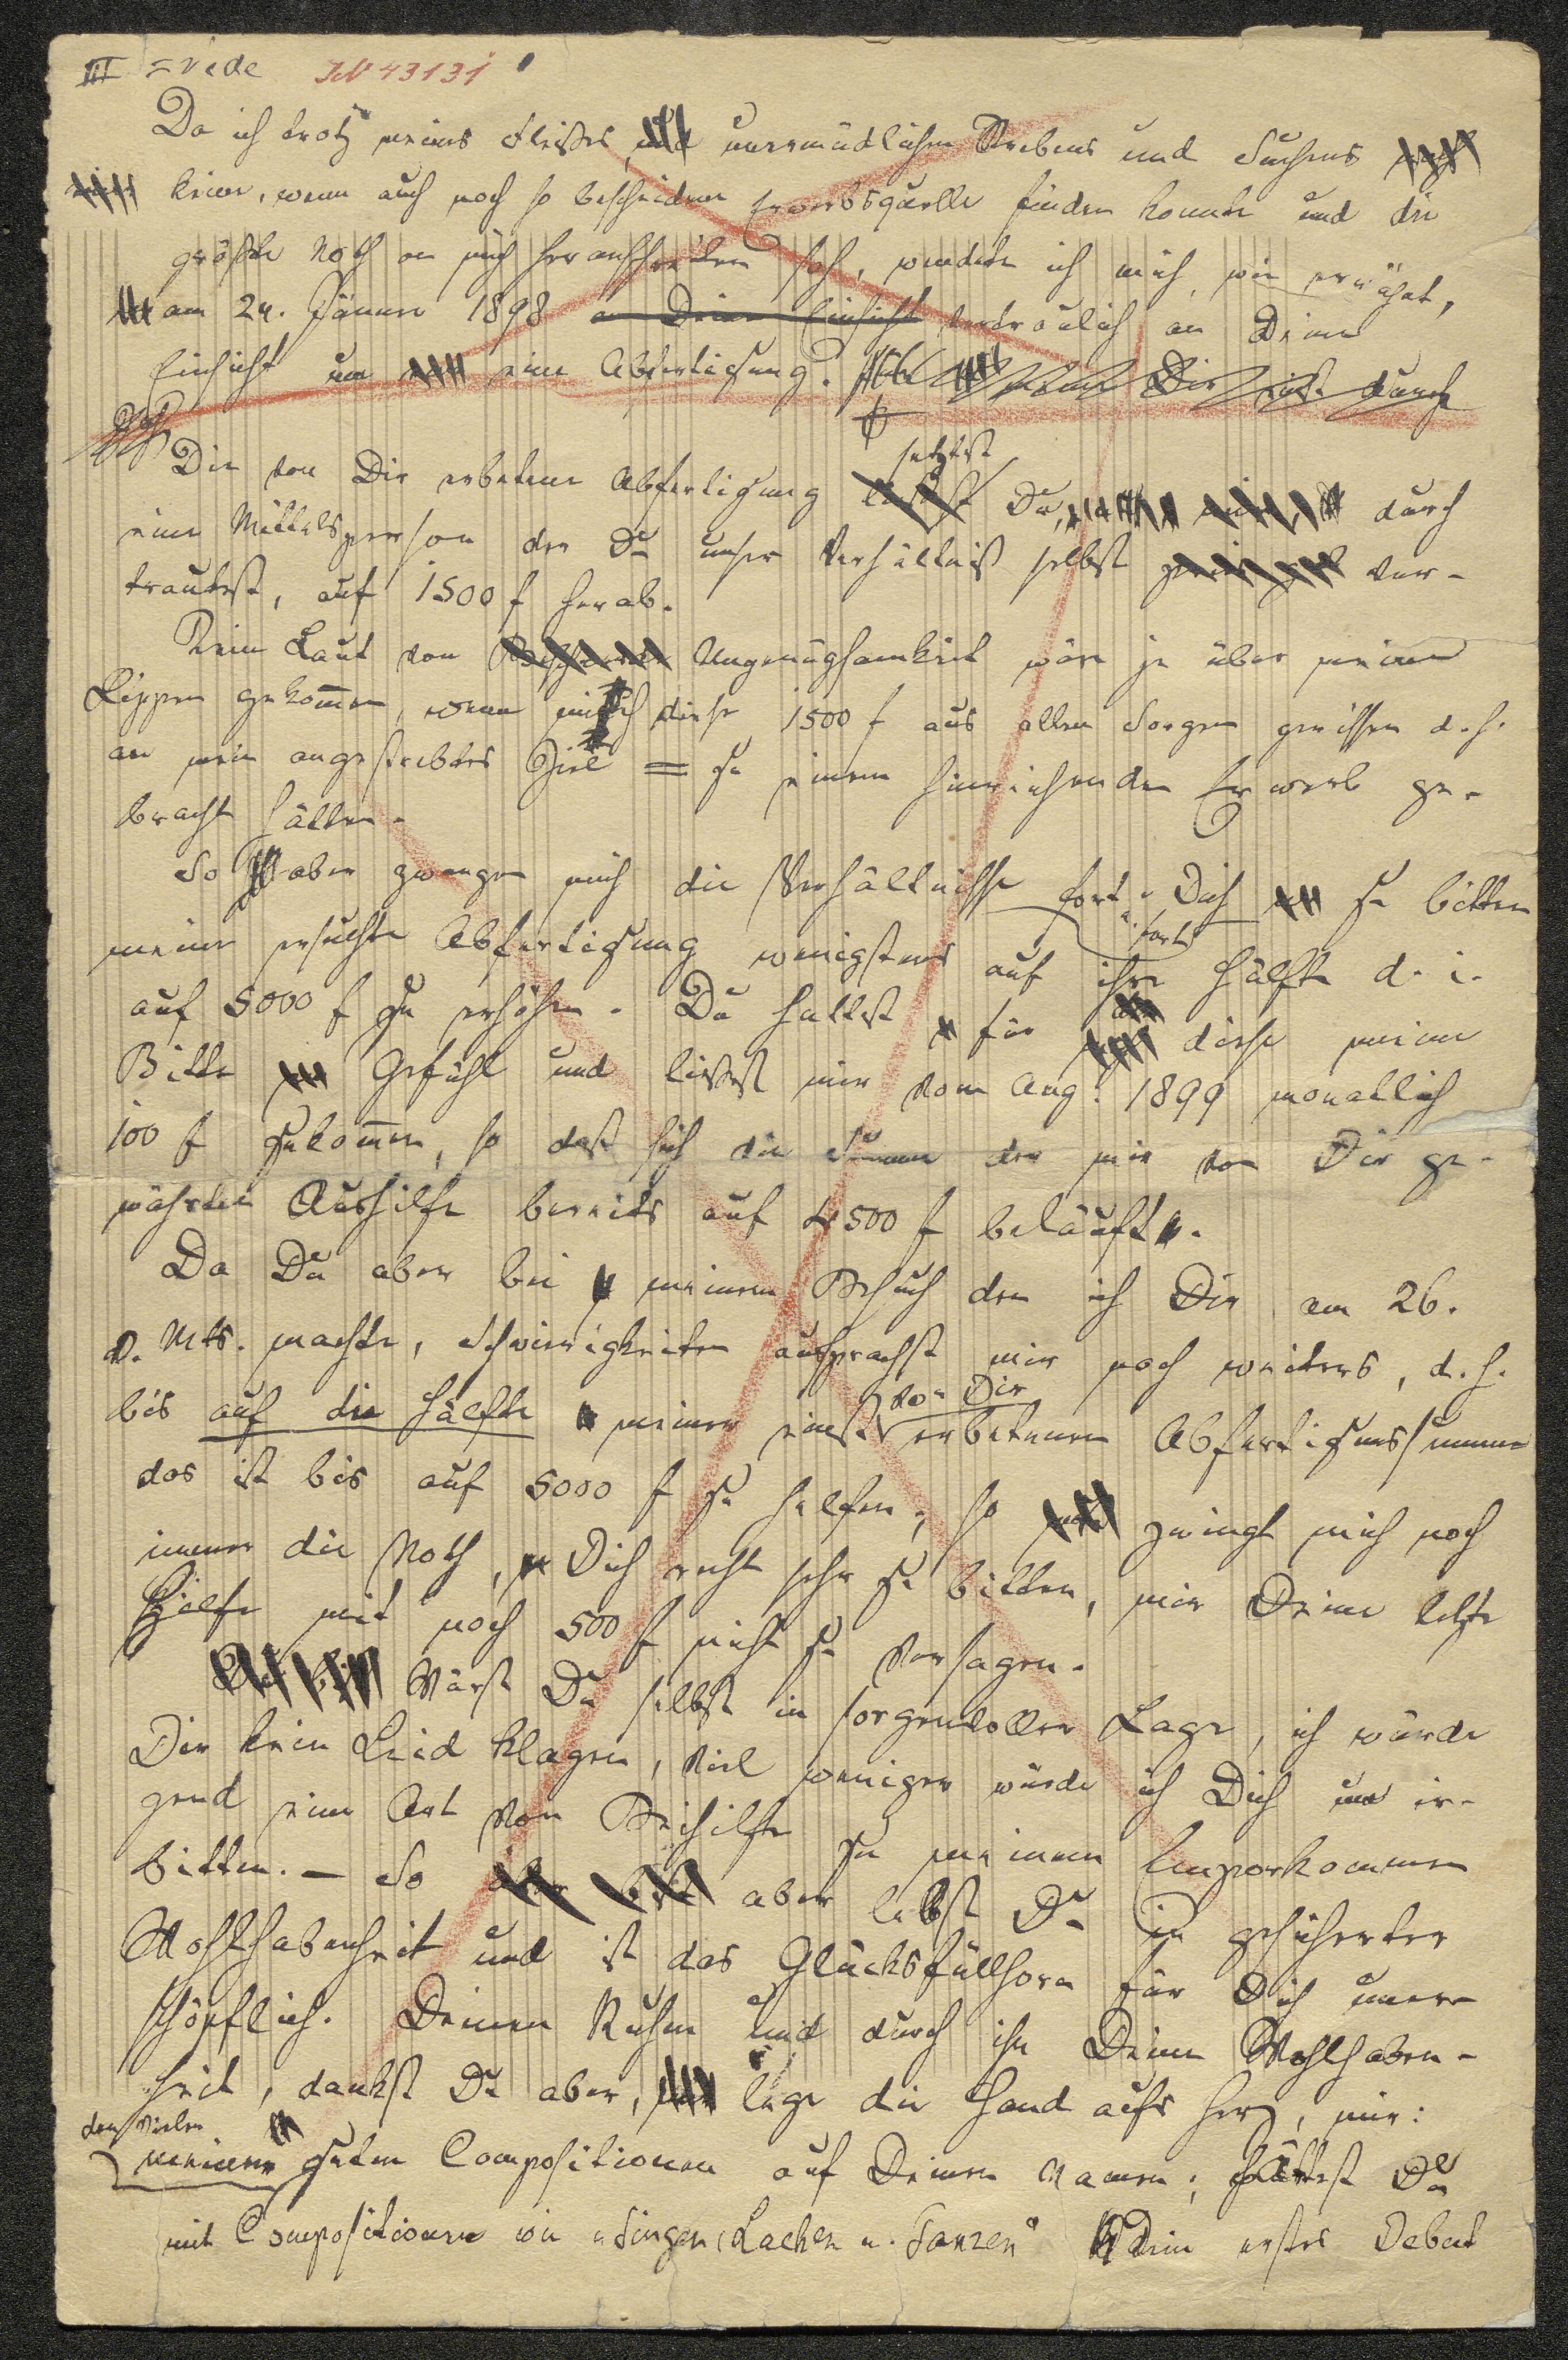 III =vide IN 43131
Da ich trotz meines Fleißes, unermüdlichen Strebens und Suchens
keine, wenn auch noch so bescheidene Erwerbsquelle finden konnte und die
größte Noth an mich heranschreiten sah, wendete ich mich, wie erwähnt,
am 24. Jänner 1898 an Deine Einsicht vertraulich an Deine
Einsicht um eine Abfertigung. Dir durch
Die von Dir erbetene Abfertigung setztest Du, durch
eine Mittelsperson der Du unser Verhältniß selbst ver-
trautest, auf 1500 f herab.
Kein Laut von Ungenügsamkeit wäre je über meine
Lippen gekom̅en, wenn mich diese 1500 f aus allen Sorgen gerissen d. h.
an mein angestrebtes Ziel = zu einem hinreichenden Erwerb ge-
bracht hätten.
So aber zwangen mich die Verhältnisse fort u. fort Dich zu bitten
meine ersuchte Abfertigung wenigstens auf ihre Hälfte d. i.
auf 5000 f zu erhöhen. Du hattest für diese meine
Bitte Gefühl und ließest mir vom Aug. 1899 monatlich
100 f zukom̅en, so daß sich die Summe der mir von Dir ge-
währten Aushilfe bereits auf 4500 f beläuft.
Da Du aber bei meinem Besuch den ich Dir am 26.
v. Mts. machte, Schwierigkeiten aussprachst mir noch weiters, d. h.
bis auf die Hälfte meiner einst von Dir erbetenen Abfertigungssumme
das ist bis auf 5000 f zu helfen, so zwingt mich noch
immer die Noth, Dich recht sehr zu bitten, mir Deine letzte
Hilfe mit noch 500 f nicht zu versagen.
Wärst Du selbst in sorgenvoller Lage, ich würde
Dir kein Leid klagen, viel weniger würde ich Dich um ir-
gend eine Art von Beihilfe zu meinem Emporkommen
bitten. – So aber lebst Du in gesicherter
Wohlhabenheit und ist das Glücksfüllhorn für Dich uner-
schöpflich. Deinen Ruhm und durch ihn Deine Wohlhaben-
heit, dankst Du aber, lege die Hand aufs Herz, mir:
den vielen
meinen guten Compositionen auf Deinen Namen; hättest Du
mit Compositionen wie „Singen, Lachen u. Tanzen“ Dein erstes Debut